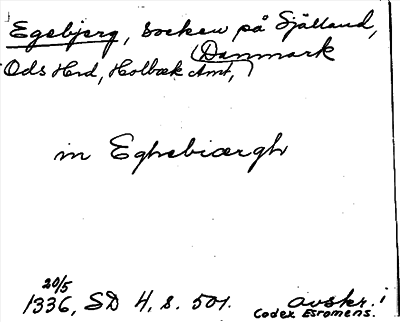 Egebjerg, socken på Själland,
(Danmark
Ods Hrd, Holbæk Amt,)
in Eghebiærgh
20/5
1336, SD 4, s. 501. avskr. i
Codex Esromens.